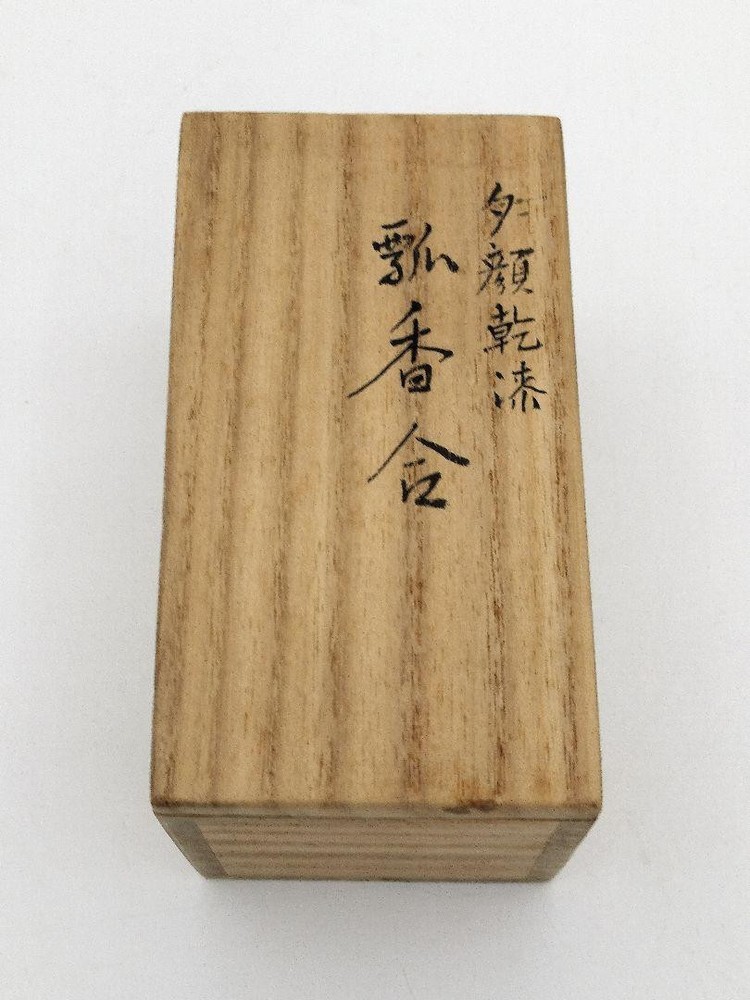 夕顔乾漆
瓢香合